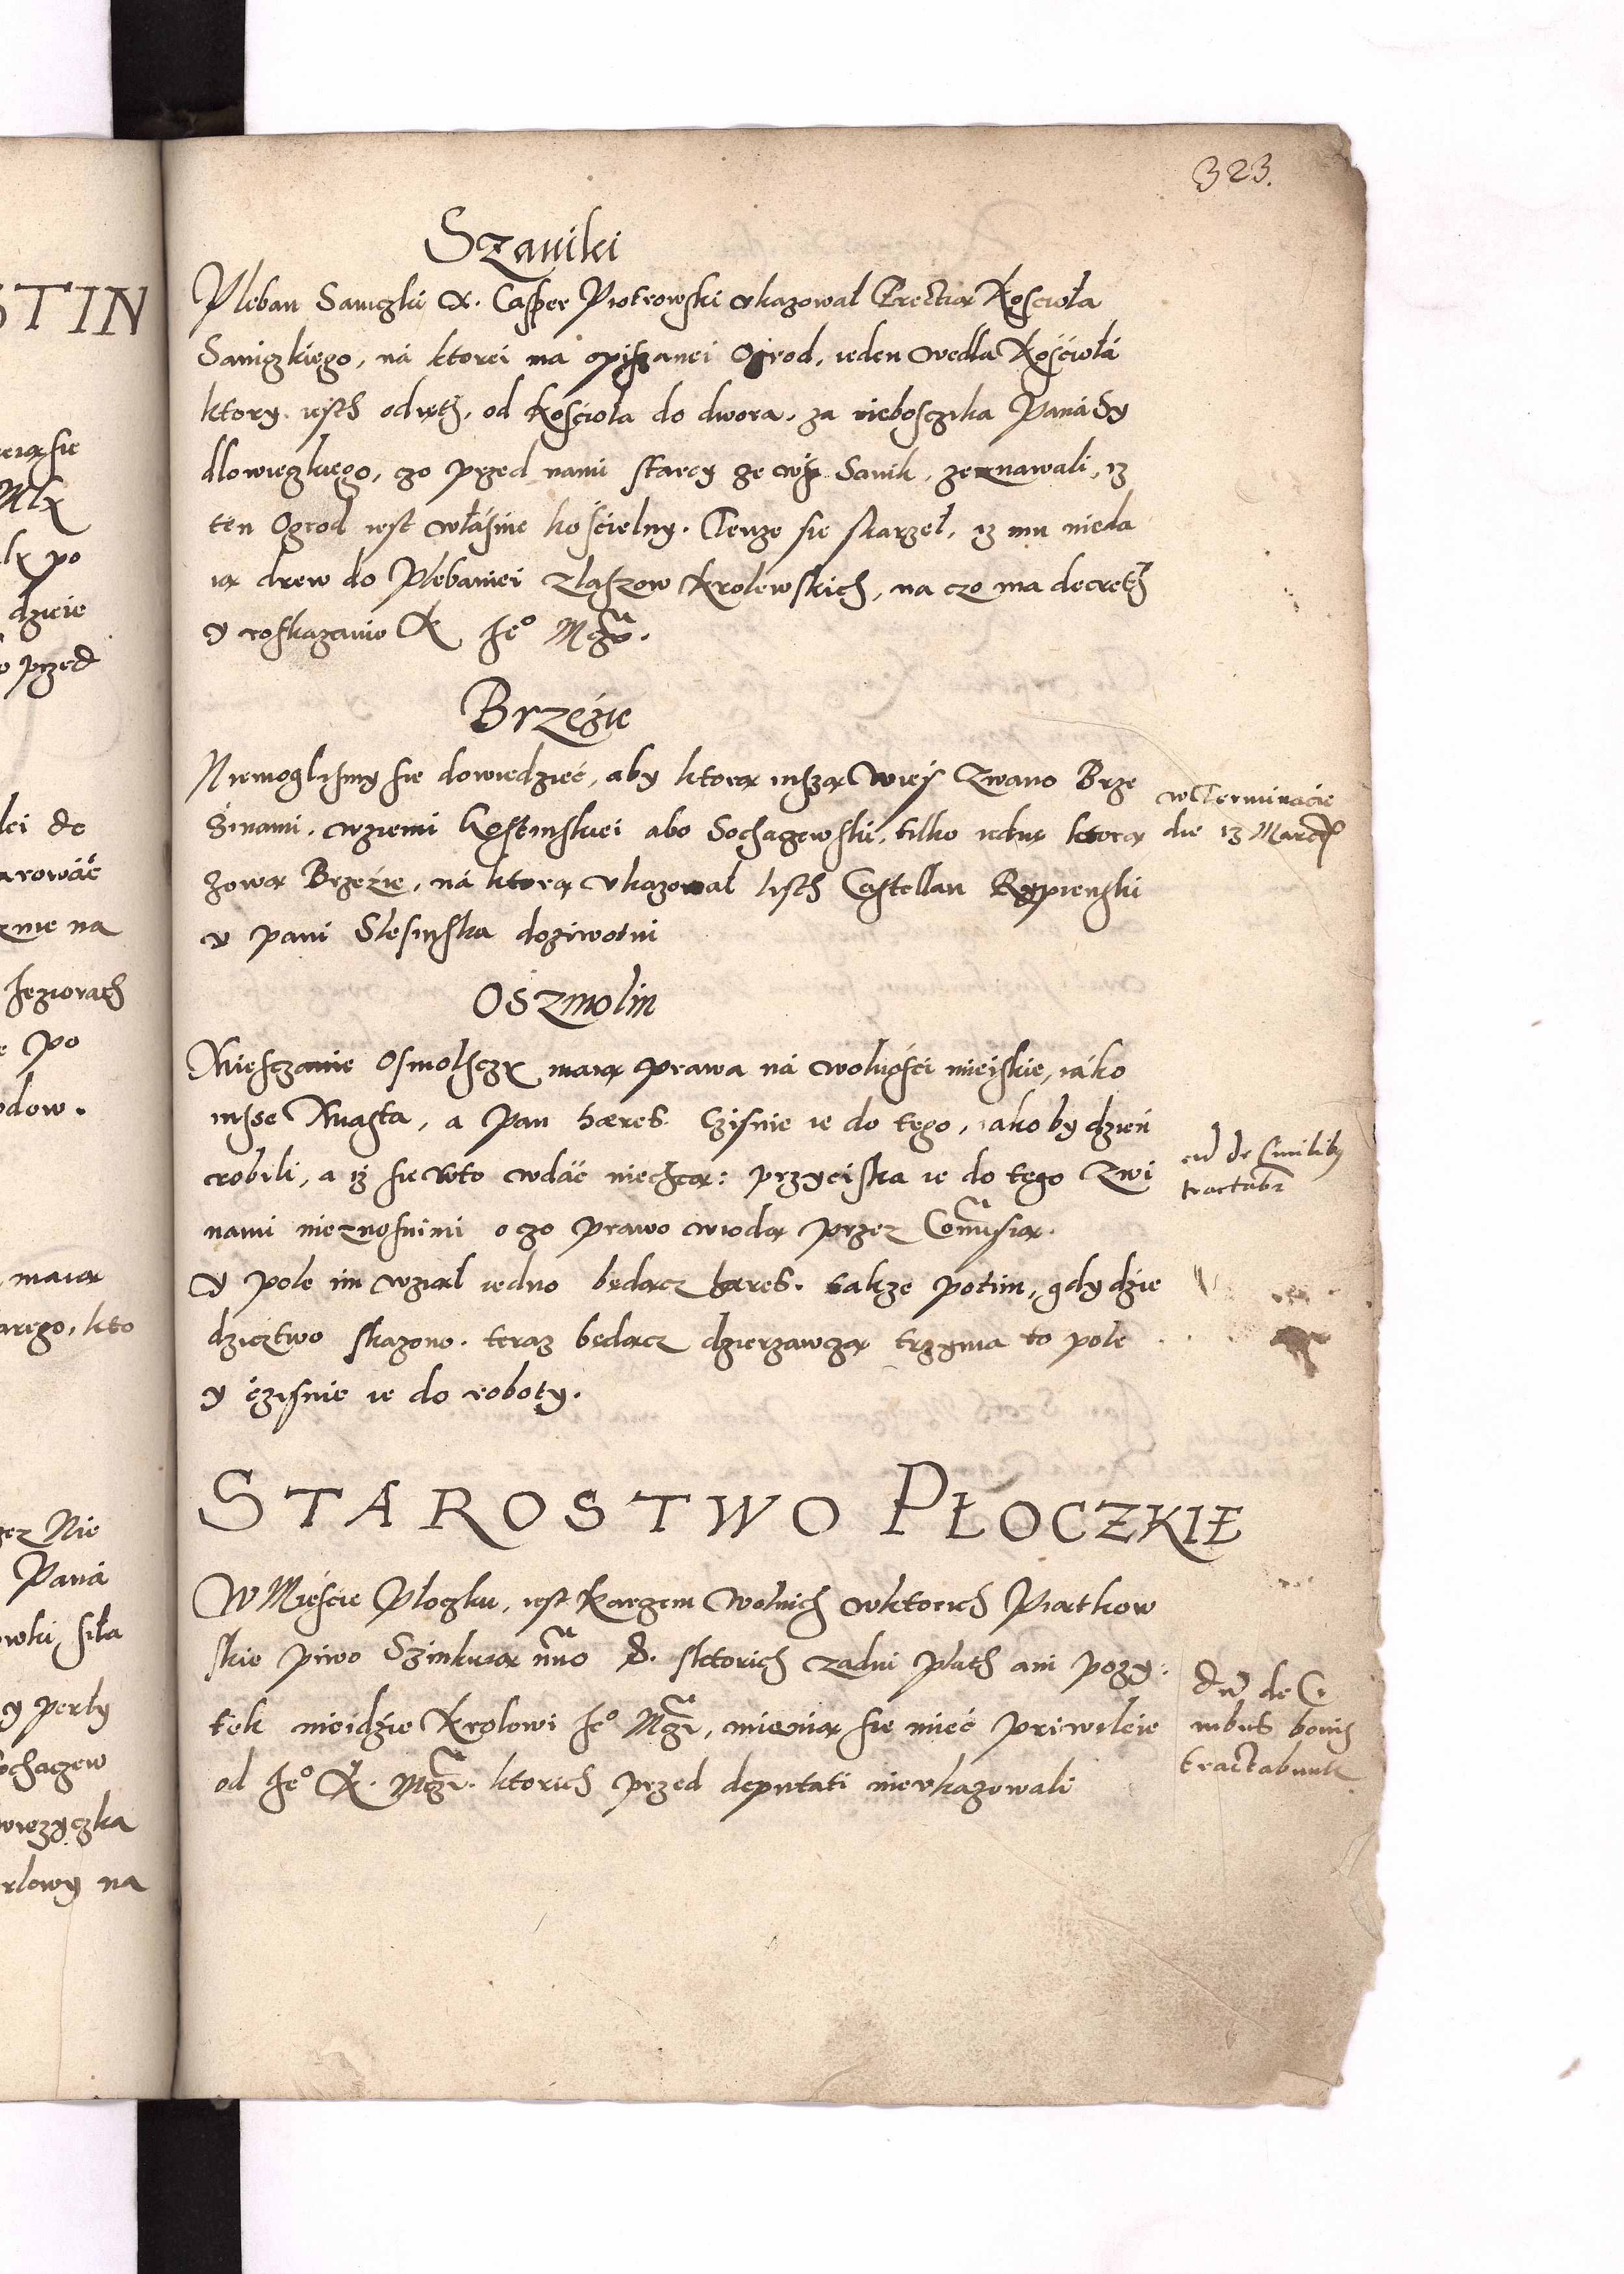 323.
Szaniki
Pleban Saniczki X. Casper Piotrowski vkazował Erectią Koscioła
Saniczkiego, ná ktorei ma opiszanei Ogrod, ieden wedla Kościołá
ktory iesth odięth, od kościoła do dwora, za nieboszczika Paná Sy
dlowieczkiego, czo przed nami starcy ze wsi Sanik, zeznawali, iz
ten Ogrod iest własnie kościelny. Tenze sie skarzeł, iz mu nieda
ią drew do Plebaniei z laszow Krolewskich, na czo ma decreth
y roskazanie K Je° Mczi.
Brzezie
Niemoglismy sie dowiedzieć, aby ktorą inszą wieś zwano Brze
zinami, wziemi Gostinskiei abo Sochaczewski, tilko iednę ktorą
zową Brzezie, ná ktorą vkazował listh Castellan Rypienski
y pani Slesinska doziwotni
w Terminacie
die 13 Marcii
Oszmolin
Miesczanie Osmolsczy maią prawa ná wolności mieiskie, iáko
insse Miasta, a pan hæres cziśnie ie do tego, iakoby dzień
robili, a iz sie w to wdáć niechcą: przyciska ie do tego z wi
nami nieznosnimi o czo prawo wiodą przez Comisią.
y pole im wziął iedno będącz hæres. takze potim, gdy dzie
dzicztwo skazono. teraz będącz dzierzawczą trzyma to pole
y cziśnie ie do roboty.
cū de similibus
tractabitur
STAROSTWO PŁOCZKIE
W Mieście Ploczku, iest Karczem wolnich wktorich Piątkow
skie piwo Szinkuią nro 8. sktorich zadni płath ani pozy:
tek nieidzie Krolowi Je° Mczi, mienią sie mieć priwileie
od Je° K. Mczi. ktorich przed deputati nie vkazowali
tractabunt